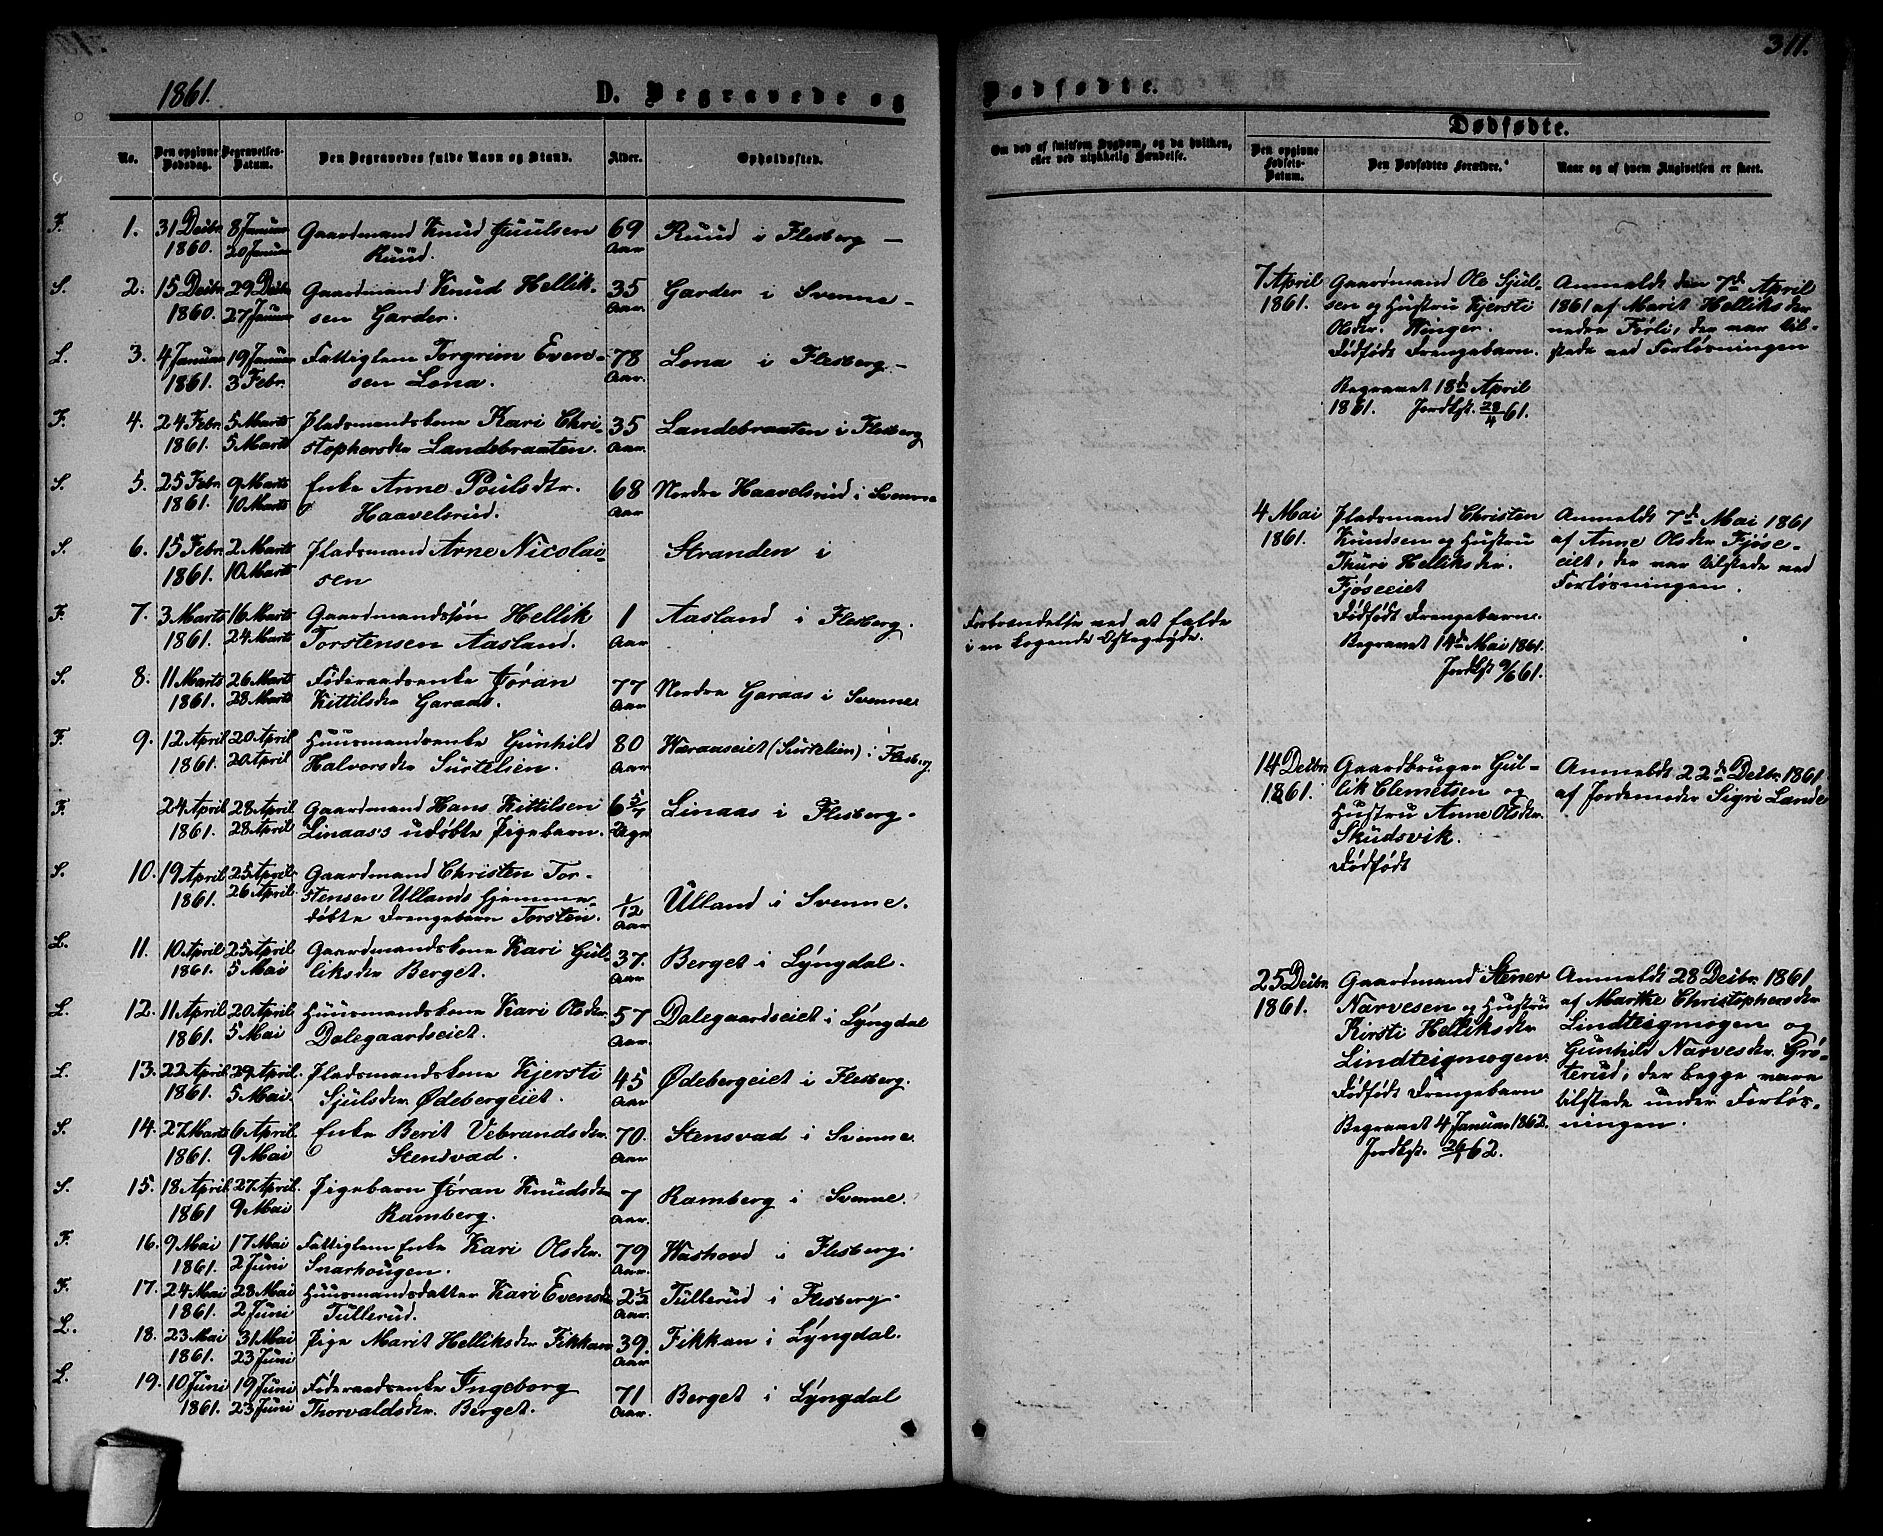 311.
1861.
D. Begravede og
Dødfødte.
No.
Den opgivne Dødsdag.
Begravelses-Datum.
Den Begravedes fulde Navn og Stand.
Alder.
Opholdssted.
Om død af smitsom Sygdom, og da hvilken,
eller ved ulykkelig Hændelse.
Dødfødte.
Den opgivne Fødsels-Datum.
Den Dødfødtes Forældre.
Naar og af hvem Angivelsen er skeet.
F. 1. 31 Decbr 8 Januar Gaardmand Knud Juulsen 69 Ruud i Flesberg —
1860. 20 Januar Ruud. Aar
S. 2. 15 Decbr 29 Decbr Gaardmand Knud Hellik- 35 Garder i Svenne —
1860. 27 Januar sen Garder. Aar.
L. 3. 4 Januar 19 Januar Fattiglem Torgrim Even- 78 Lona i Flesberg —
1861. 3 Febr. sen Lona. Aar.
F. 4. 24 Febr. 5 Marts Pladsmandskone Kari Chri- 35 Landebraaten i Flesberg
1861. 5 Marts stophersdtr Landebraaten. Aar.
S. 5. 25 Febr. 9 Marts Enke Anne Poulsdtr. 68 Nordre Haavelsrud i Svenne
1861. 10 Marts Haavelsrud. Aar
S. 6. 15 Febr. 2 Marts Pladsmand Arne Nicolai- Stranden i
1861. 10 Marts sen
F. 7. 3 Marts 16 Marts Gaardmandssøn Hellik 1 Aasland i Flesberg. Forbrændelse ved at falde
1861. 24 Marts Torstensen Aasland. Aar i en kogende Ostegryde.
S. 8. 11 Marts 26 Marts Føderaadsenke Jøran 77 Nordre Garaas i Svenne
1861. 28 Marts Kittilsdtr Garaas. Aar
F. 9. 12 April 20 April Huusmandsenke Gunhild 80 Waraaseiet (Surtelien) i Flesberg.
1861. 20 April Halvorsdtr Surtelien. Aar
F. 24 April 28 April Gaardmand Hans Kittilsen 6 5/7 Linaas i Flesberg.
1861. 28 April Linaas's udøbte Pigebarn. Uger
S. 10. 19 April 25 April Gaardmand Christen Tor-
1861. 26 April. stensen Ullands hjemme- 1/12 Ulland i Svenne.
døbte Drengebarn Torsten. Aar
L. 11. 10 April 25 April Gaardmandskone Kari Gul- 37. Berget i Lyngdal.
1861. 5 Mai liksdtr Berget. Aar
L. 12. 11 April 20 April Huusmandskone Kari Olsdtr. 57 Dalegaardseiet i Lyngdal
1861. 5 Mai Dalegaardseiet. Aar.
L. 13. 22 April 29 April. Pladsmandskone Kjersti 45 Ødebergeiet i Flesberg.
1861. 5 Mai. Sjulsdtr Ødebergeiet. Aar
S. 14. 27 Marts 6 April. Enke Berit Vebrandsdtr. 70. Stensvad i Svenne
1861. 9 Mai Stensvad. Aar
S. 15. 18 April 27 April. Pigebarn Jøran Knudsdtr 7 Ramberg i Svenne.
1861 9 Mai Ramberg. Aar.
F. 16. 9 Mai 17 Mai Fattiglem Enke Kari Olsdtr. 79 Washovd i Flesberg.
1861. 2 Juni Snarhougen. Aar.
F. 17. 24 Mai 28 Mai Huusmandsdatter Kari Evensdtr 2 1/2 Tullerud i Flesberg.
1861. 2 Juni Tullerud. Aar.
L. 18. 23 Mai 31 Mai Pige Marit Helliksdtr Fikkan 39. Fikkan i Lyngdal.
1861. 23 Juni Aar.
L. 19. 10 Juni 19 Juni Føderaadsenke Ingeborg 71 Berget i Lyngdal
1861. 23 Juni Thorvaldsdtr. Berget. Aar.
7 April Gaardmand Ole Sjul- Anmeldt den 7de April
1861. sen og Hustru Kjersti 1861 af Marit Helliksdtr
Olsdtr. Ringer. nedre Førli, der var til-
Dødfødt Drengebarn. stede ved Forløsningen
Begravet 18de April
1861. Jordkst. 28/4 61.
4 Mai Pladsmand Christen Anmeldt 7de Mai 1861
1861. Knudsen og Hustru af Anne Olsdtr Fjøse-
Thuri Helliksdtr. eiet, der var tilstede ved
Fjøseeiet Forløsningen.
Dødfødt Drengebarn.
Begravet 14de Mai 1861.
Jordkst 9/6 61.
14 Decbr. Gaardbruger Gul- Anmeldt 22de Decbr. 1861
1861. lik Clemetsen og af Jordemoder Sigri Lande
Hustru Anne Olsdtr.
Skudsvik.
Dødfødt
25 Decbr. Gaardmand Stener Anmeldt 28 Decbr. 1861
1861. Narvesen og Hustru af Marthe Christophersdtr
Kirsti Helliksdtr Lindteigmogen og
Lindteigmogen. Gunhild Narvesdtr. Grø-
Dødfødt Drengebarn terud, der begge vare
Begravet 4 Januar 1862. tilstede under Forløs-
Jordkst. 26/1 62. ningen.